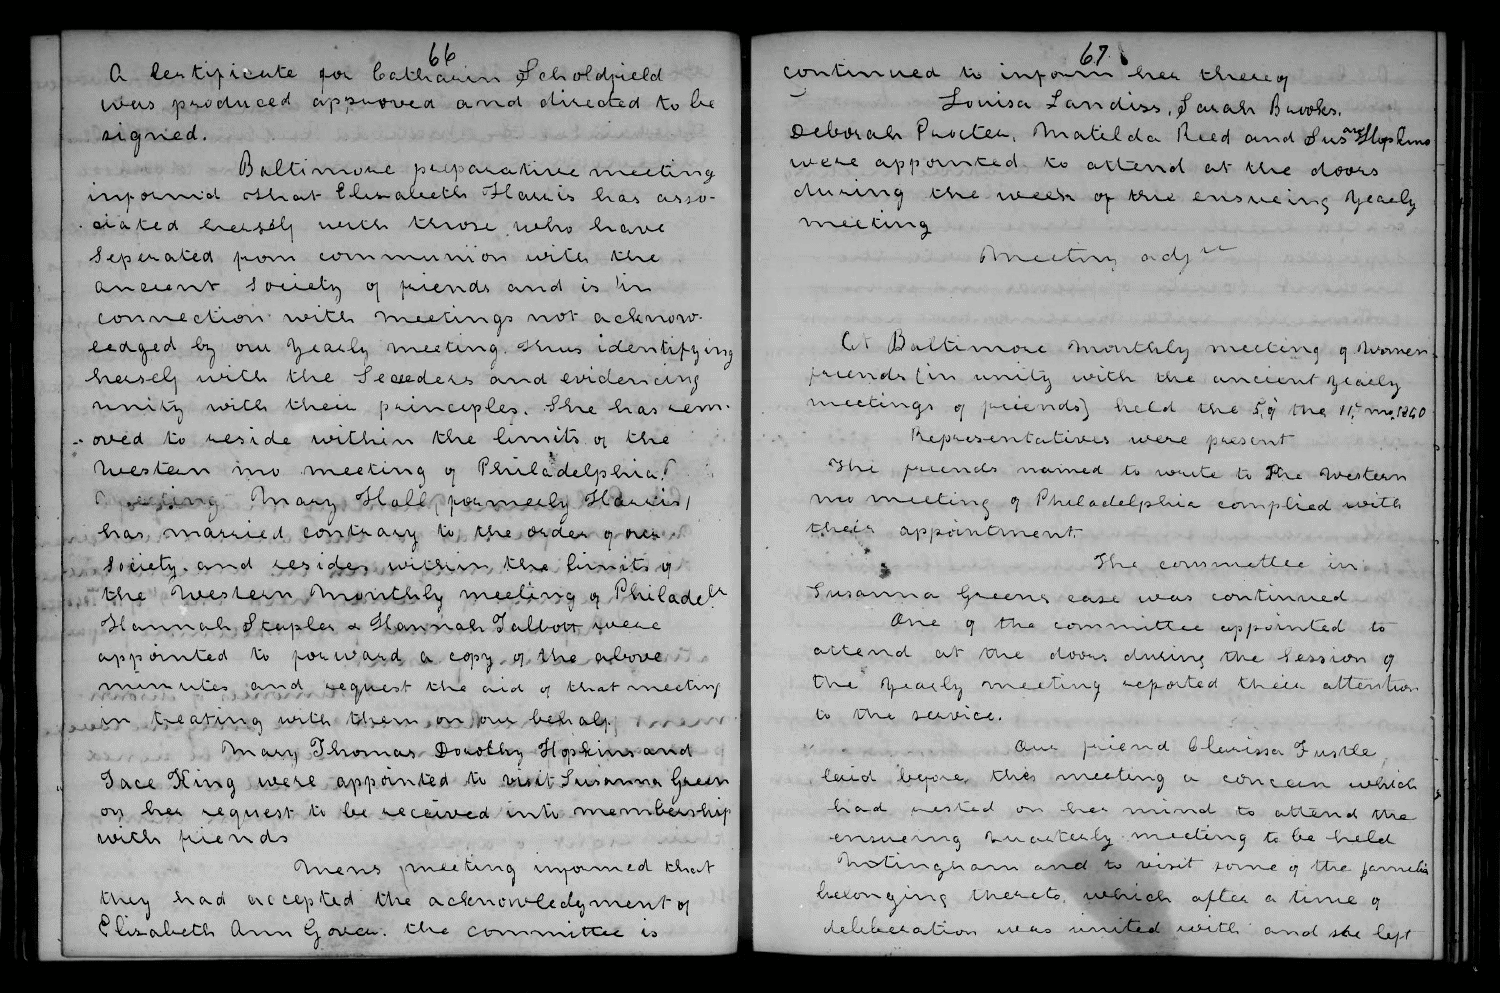 66
A Certificate for Catharin Scholdfield
was produced approved and directed to be
signed.
Baltimore preparative meeting
inform'd that Elisabeth Harris has asso-
ciated herself with those who have
Seperated from communion with the
ancient Society of friends and is in
connection with meetings not acknow-
ledged by our Yearly meeting. thus identifying
herself with the Seceeders and evidencing
unity with their principles. She has rem-
oved to reside within the limits of the
Western mo meeting of Philadelphia.
Mary Hall, formerly Harris,
has married contrary to the order of our
Society. and resides within the limits of
the Western Monthly meeting of Philadela
Hannah Stapler & Hannah Talbott were
appointed to forward a copy of the above
minutes and request the aid of that meeting
in treating with them on our behalf.
Mary Thomas Dorothy Hopkins and
Tace King were appointed to visit Susanna Green
on her request to be received into membership
with friends
Mens meeting informed that
they had accepted the acknowledgment of
Elisabeth Ann Gover. the committee is
67
continued to inform her thereof
Louisa Landiss, Sarah Brooks,
Deborah Procter, Matilda Reed and Susan Hopkins
were appointed to attend at the doors
during the week of the ensueing Yearly
meeting
Meeting adjn
At Baltimore Monthly meeting of Women
friends (in unity with the ancient Yearly
meetings of friends) held the 5th of the 11th mo. 1840
Representatives were present
The friends named to write to the Western
mo meeting of Philadelphia complied with
their appointment.
The committee in
Susanna Greens case was continued
One of the committee appointed to
attend at the doors during the Session of
the Yearly meeting reported their attention
to the service.
Our friend Clarissa
laid before this meeting a concern which
had rested on her mind to attend the
ensueing Quarterly meeting to be held
Notingham and to visit some of the families
belonging thereto. which after a time of
deliberation was united with and she left